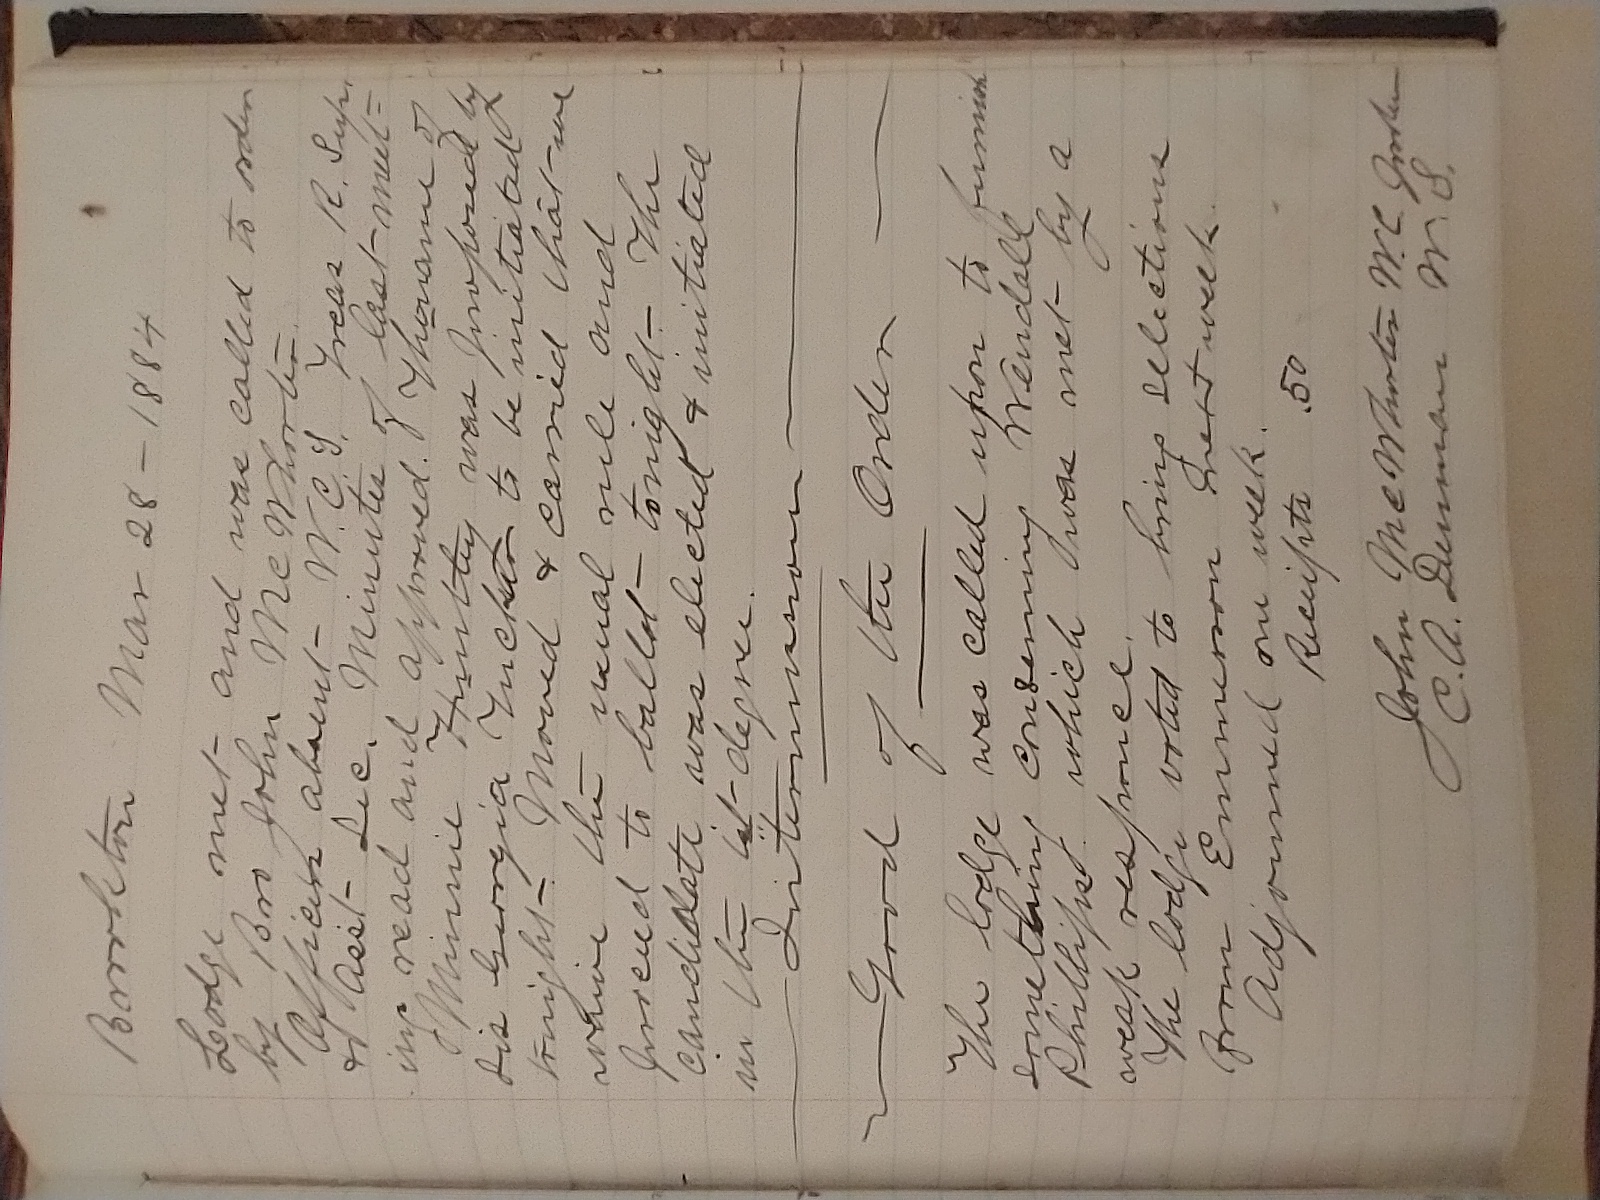 Mar 28 - 1884
Lodge met and was called to order
by Bro John McWhorter.
Officers absent W.C.T. Treas R. Sup.
& Asst Sec. Minutes of last meet=
ing read and approved. The name of
Minnie Huntley was proposed by
Sis Georgia Tucker to be initiated
tonight. Moved & carried that we
waive the usual rule and
proceed to ballot tonight. The
candidate was elected & initiated
in the 1st degree.
Intermission
Good of the Order
The lodge was called upon to furnish
something concerning Wendall
Phillips. which was met by a
weak response.
The lodge voted to bring selections
from Emmerson next week.
Adjourned one week.
Receipts .50
John McWhorter W.C.
C.A. Denman W.S.